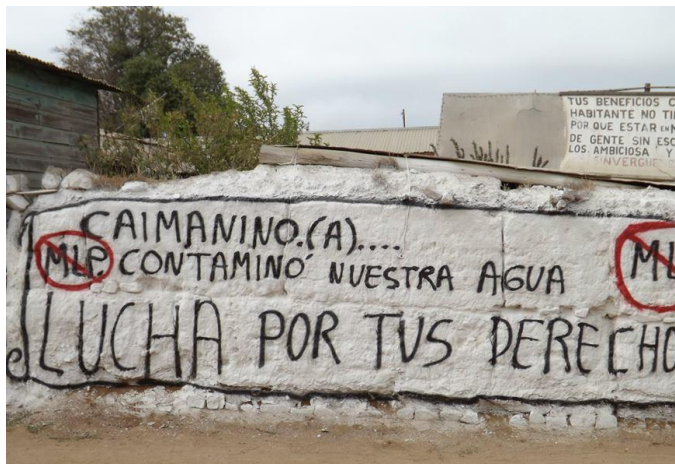 TUS BENEFICIOS
HABITANTE NO
POR QUE ESTAR EN
DE GENTE SIN
LOS AMBICIOSA Y
CAIMANINO.(A)....
MLP. CONTAMINÓ NUESTRA AGUA
LUCHA POR TUS DERECHO